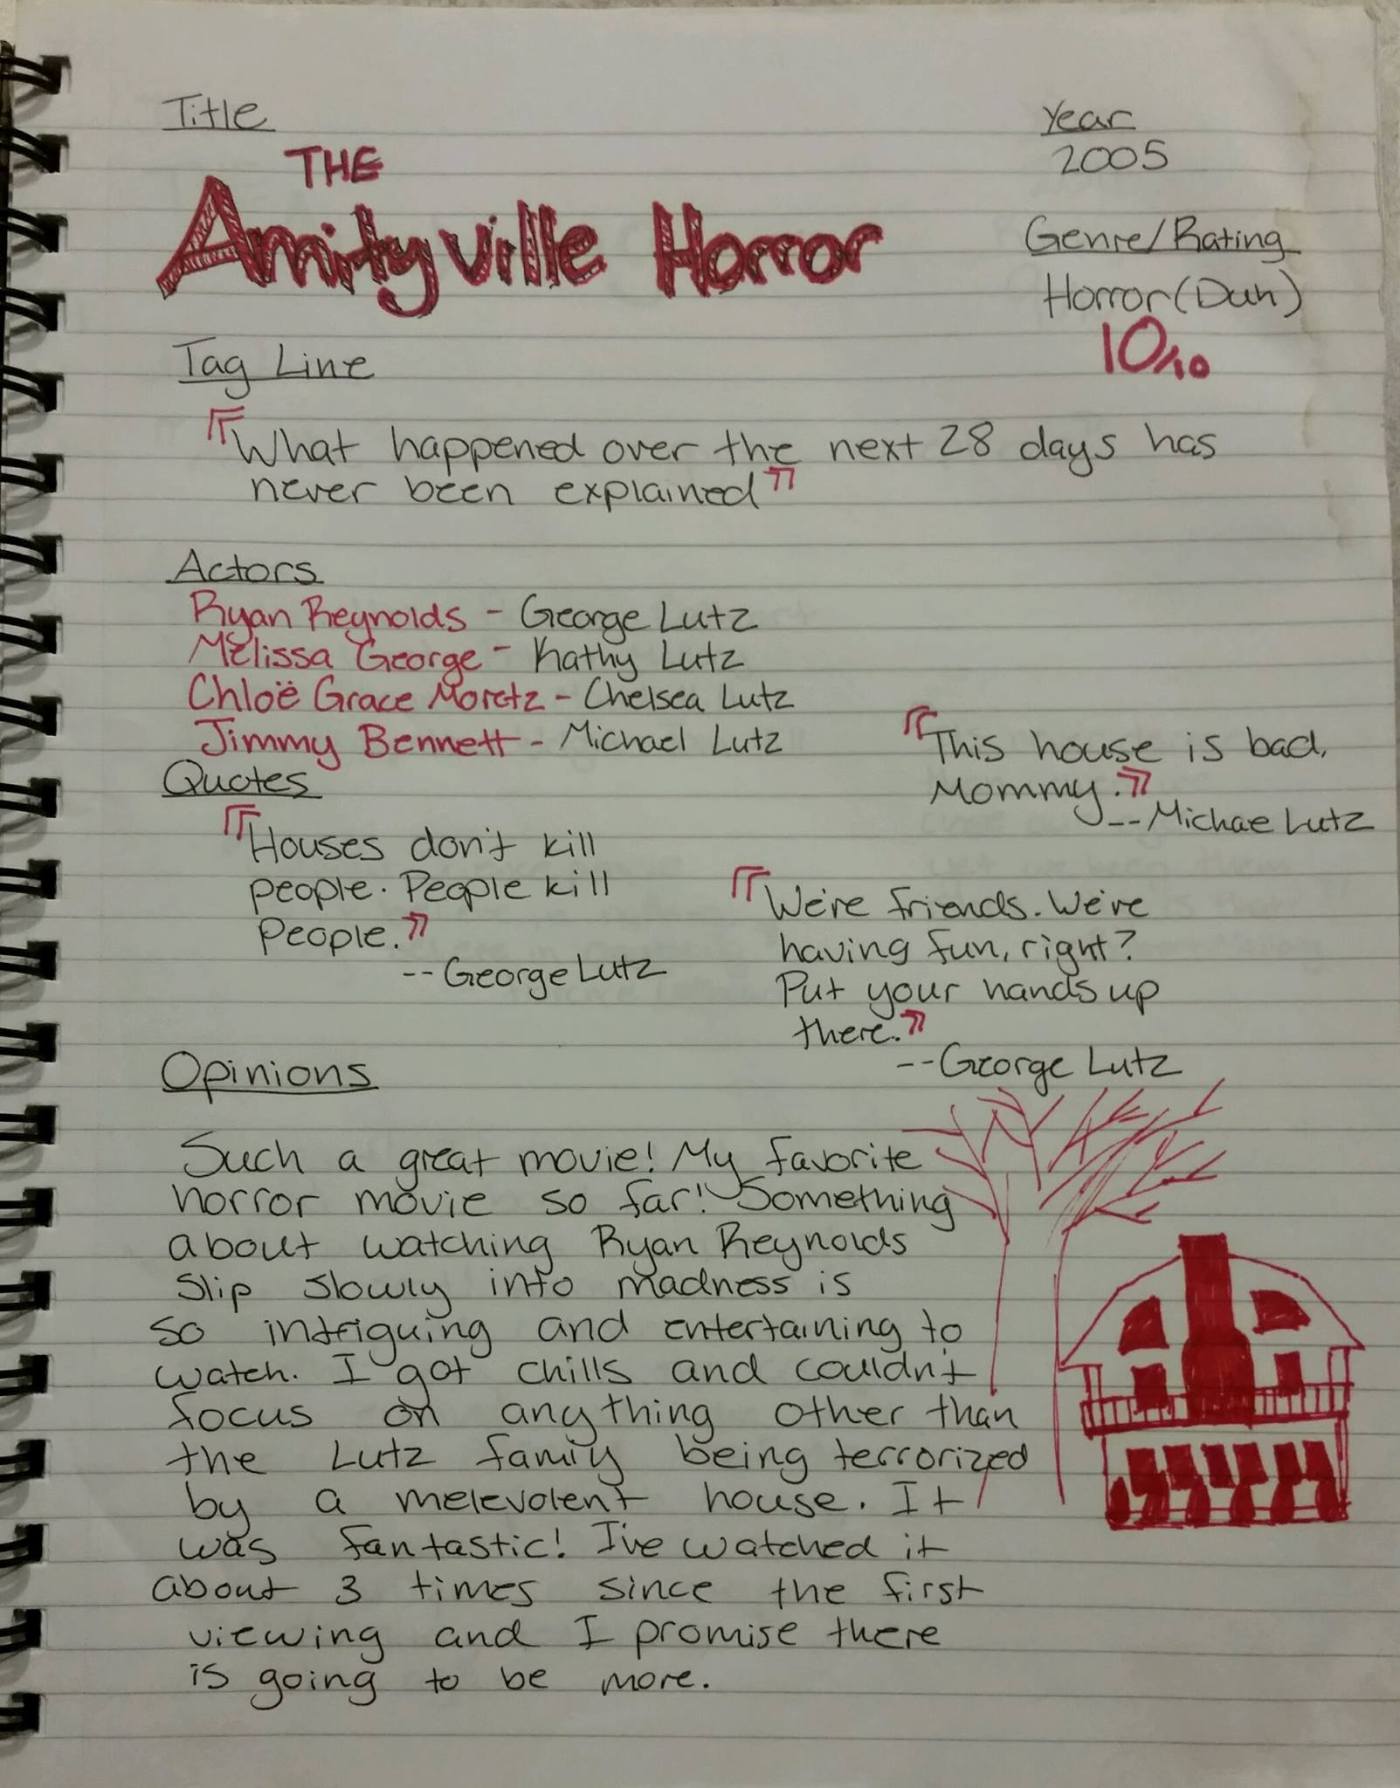 Title
THE
Amityville Horror
Year
2005
Genre/Rating
Horror (Duh)
10/10
Tag Line
"What happened over the next 28 days has
never been explained"
Actors
Ryan Reynolds - George Lutz
Melissa George - Kathy Lutz
Chloë Grace Moretz - Chelsea Lutz
Jimmy Bennett - Michael Lutz
Quotes
"Houses don't kill
people. People kill
People."
-- George Lutz
"This house is bad,
Mommy."
-- Michae Lutz
"We're friends. We're
having fun, right?
Put your hands up
there."
-- George Lutz
Opinions
Such a great movie! My favorite
horror movie so far! Something
about watching Ryan Reynolds
slip slowly into madness is
so intriguing and entertaining to
watch. I got chills and couldn't
focus on anything other than
the Lutz family being terrorized
by a melevolent house. It
was fantastic! I've watched it
about 3 times since the first
viewing and I promise there
is going to be more.